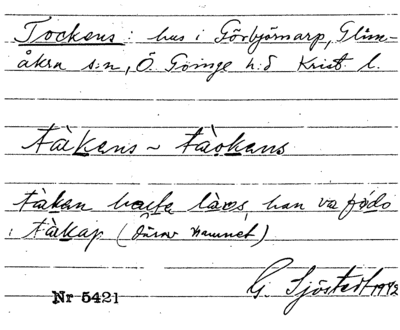 Tockens: hus i Görbjörnarp, Glim-
åkra s:n, Ö. Göinge h:d Krist. l.
tàkens ~ tàokens
tàkan hette làvs, han va fødo
i tàkap (Därav namnet)
G. Sjöstedt 1942
Nr 5421